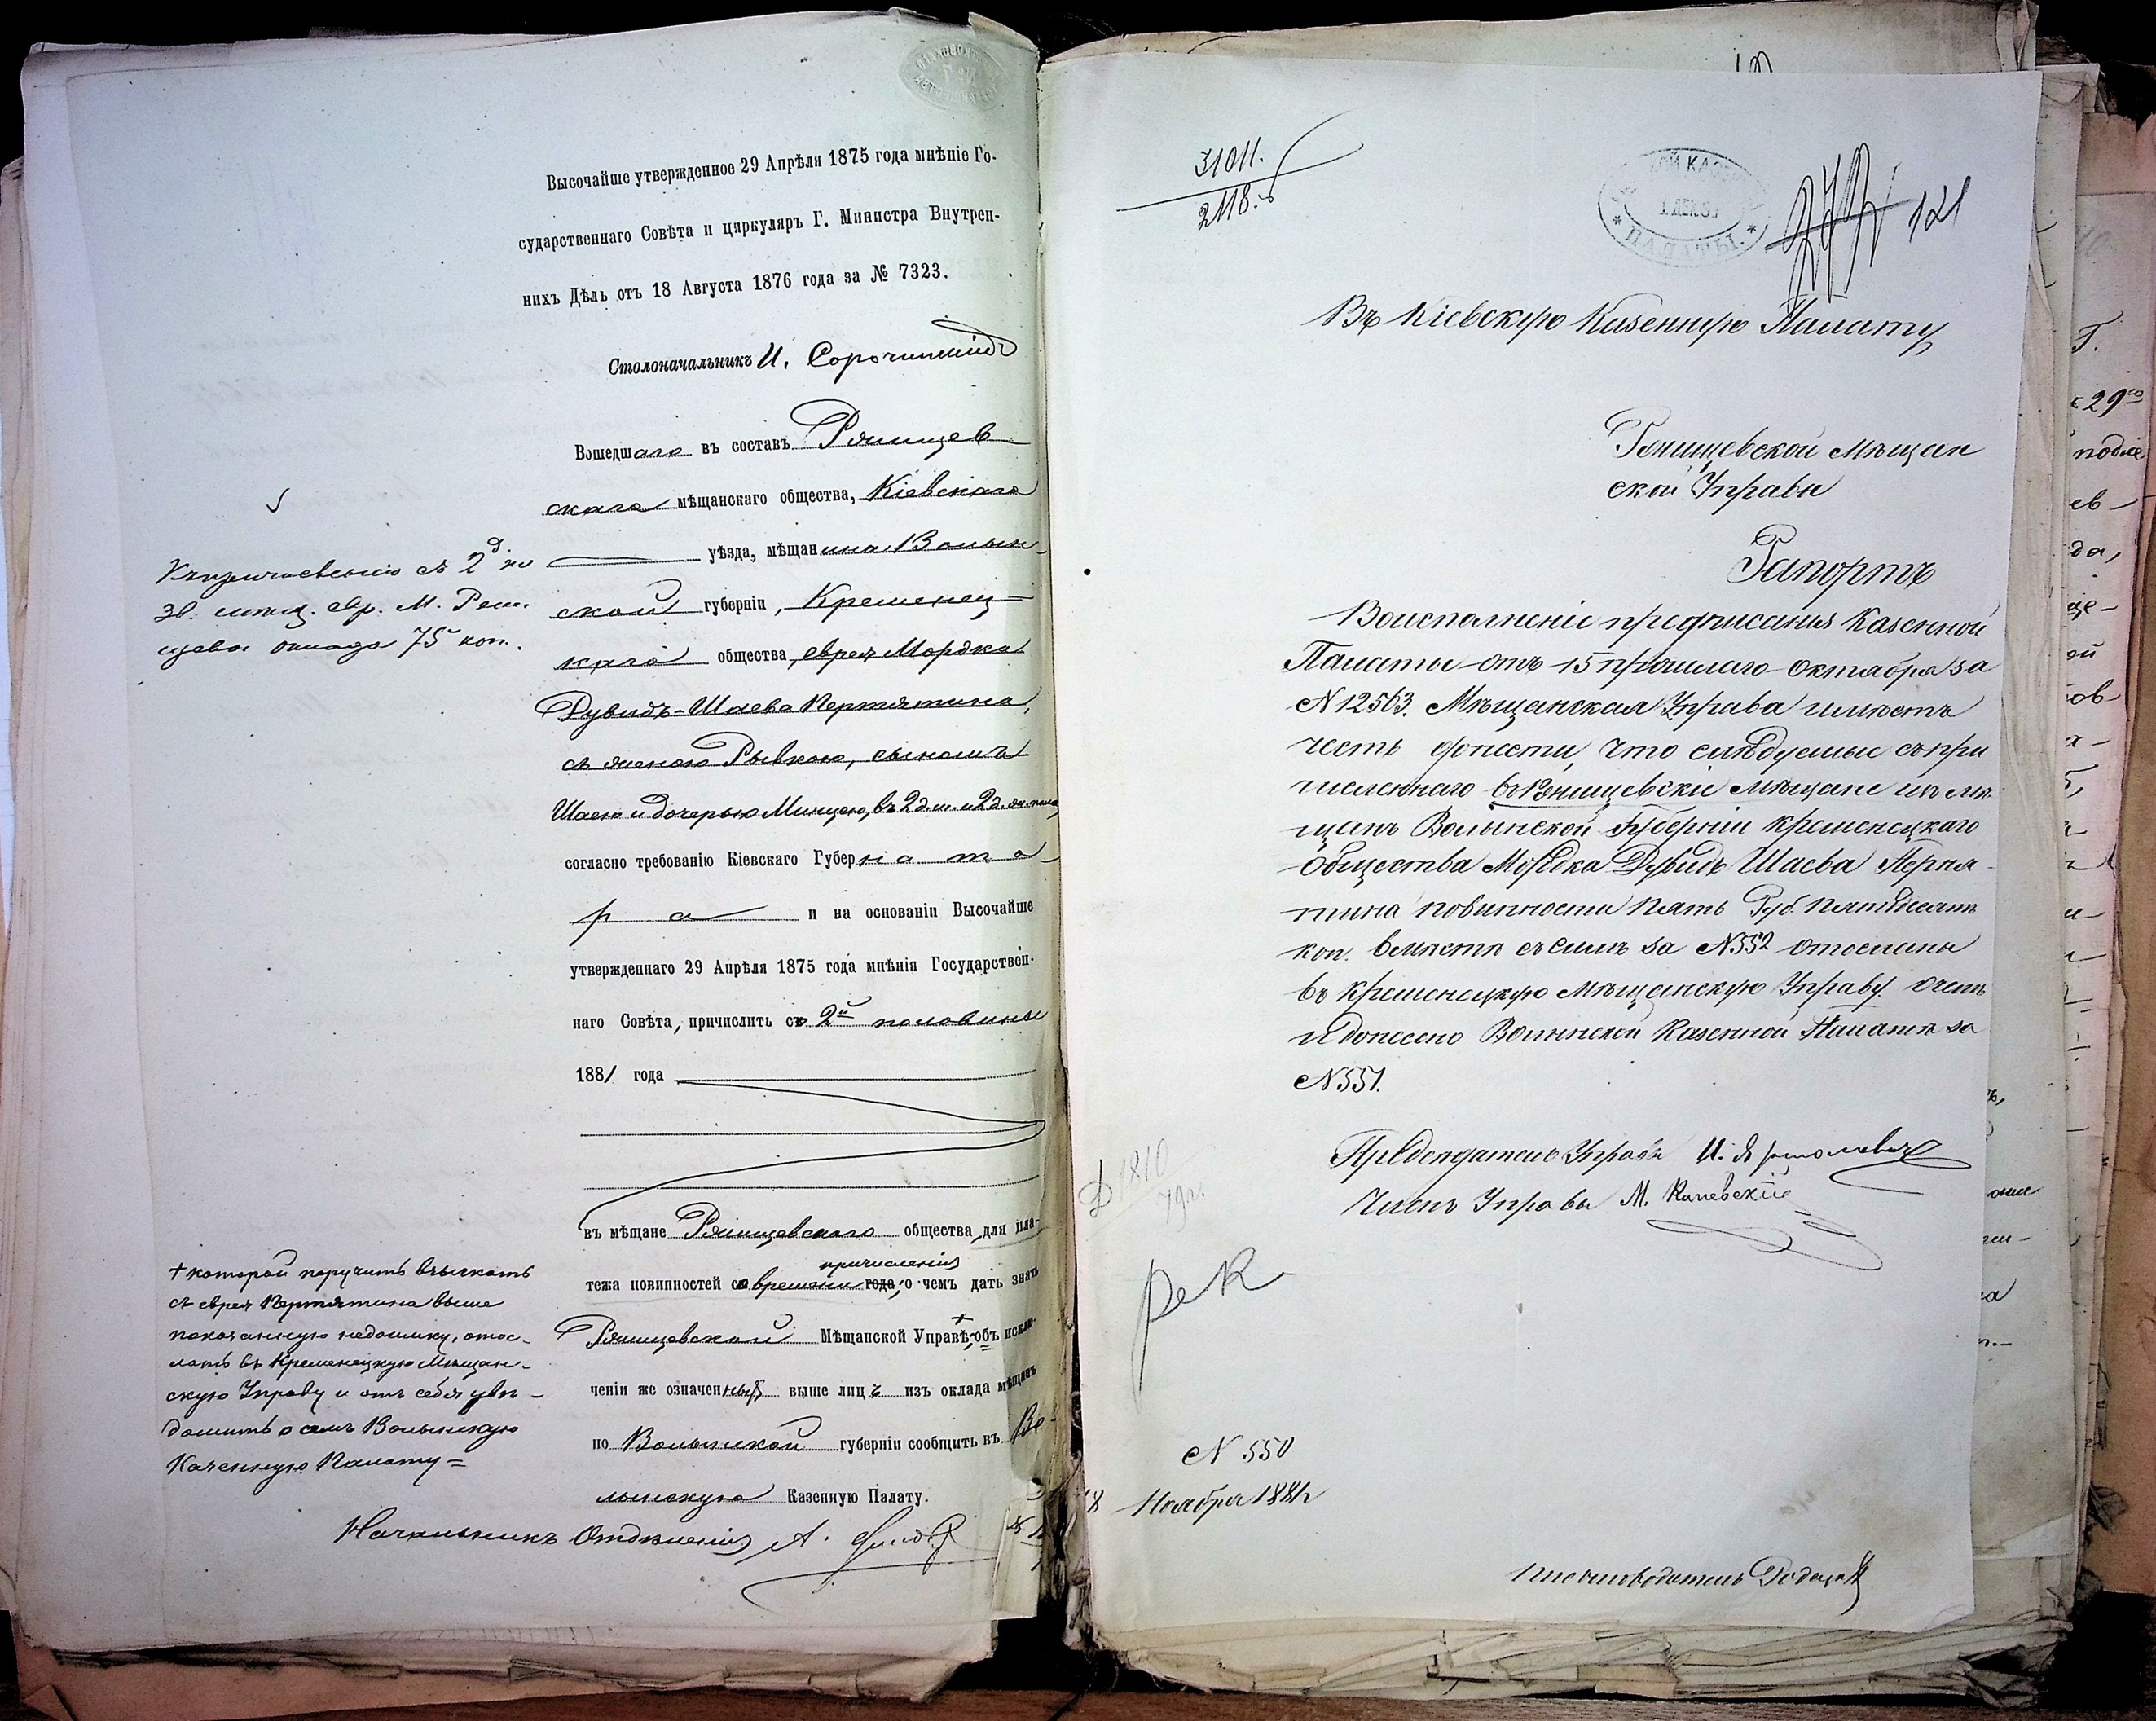 Высочайше утвержденное 29 Апрѣля 1875 года мнѣніе Го-
сударственнаго Совѣта и циркуляръ Г. Министра Внутрен-
нихъ Дѣлъ отъ 18 Августа 1876 года за № 7323.
Столоначальникъ И.
Вошедшаго въ составъ Ряшищев
скаго мѣщанскаго общества, Кіевскаго
уѣзда, мѣщанина Волын-
ской губерніи, Кременец-
каго общества, еврея Мордка
Дувидъ-Шаева Пертятина,
съ женою Рывкою, сыномъ
Шаею и дочерью Минцею, въ 2 д. м. и 2 д. ж. пола
согласно требованію Кіевскаго Губернато-
ра и на основаніи Высочайше
утвержденнаго 29 Апрѣля 1875 года мнѣнія Государствен-
наго Совѣта, причислить съ 2й половины
1881 года
въ мѣщане Ряшищевскаго общества для пла-
причисленія
тежа повинностей со времени года, о чемъ дать знать
Ряшищевской Мѣщанской Управѣ, + объ исклю-
ченіи же означенныхъ выше лицъ изъ оклада мѣщанъ
по Волынской губерніи сообщить въ Во-
лынскую Казенную Палату.
Начальникъ Отдѣленія А.
съ 2й по
75 коп.
+ которой поручить взыскать
съ еврея Пертятина выше
показанную недоимку, отос-
лать въ Кременецкую Мѣщан-
скую Управу и отъ себя увѣ-
домить о семъ Волынскую
Казенную Палату =
31011.
2118.
КАЗЕН
1 ДЕК 8
ПАЛАТЫ.
121
Въ Кіевскую Казенную Палату
Ряшищевской Мѣщан
ской Управы
Рапортъ
Воисполненіе предписанія Казенной
Палаты отъ 15 прошлаго Октября за
N 12563. Мѣщанская Управа имѣетъ
честь донести, что слѣдуемые съ при
численнаго въ Ряшищевскіе Мѣщане изъ мѣ
щанъ Волынской Губерніи Кременецкаго
общества Мордка Дувидъ Шаева Перптя-
тина повинности Пять Руб. Пятьдесятъ
коп. вмѣстѣ съ симъ за N 552 отосланы
въ Кременецкую Мѣщанскую Управу. очемъ
и донесено Волынской Казенной Палатѣ за
N 551.
Предсѣдатель Управы И.
Членъ Управы М. Каневскій
N 550
18 Ноября 1881 г
Писмоводитель